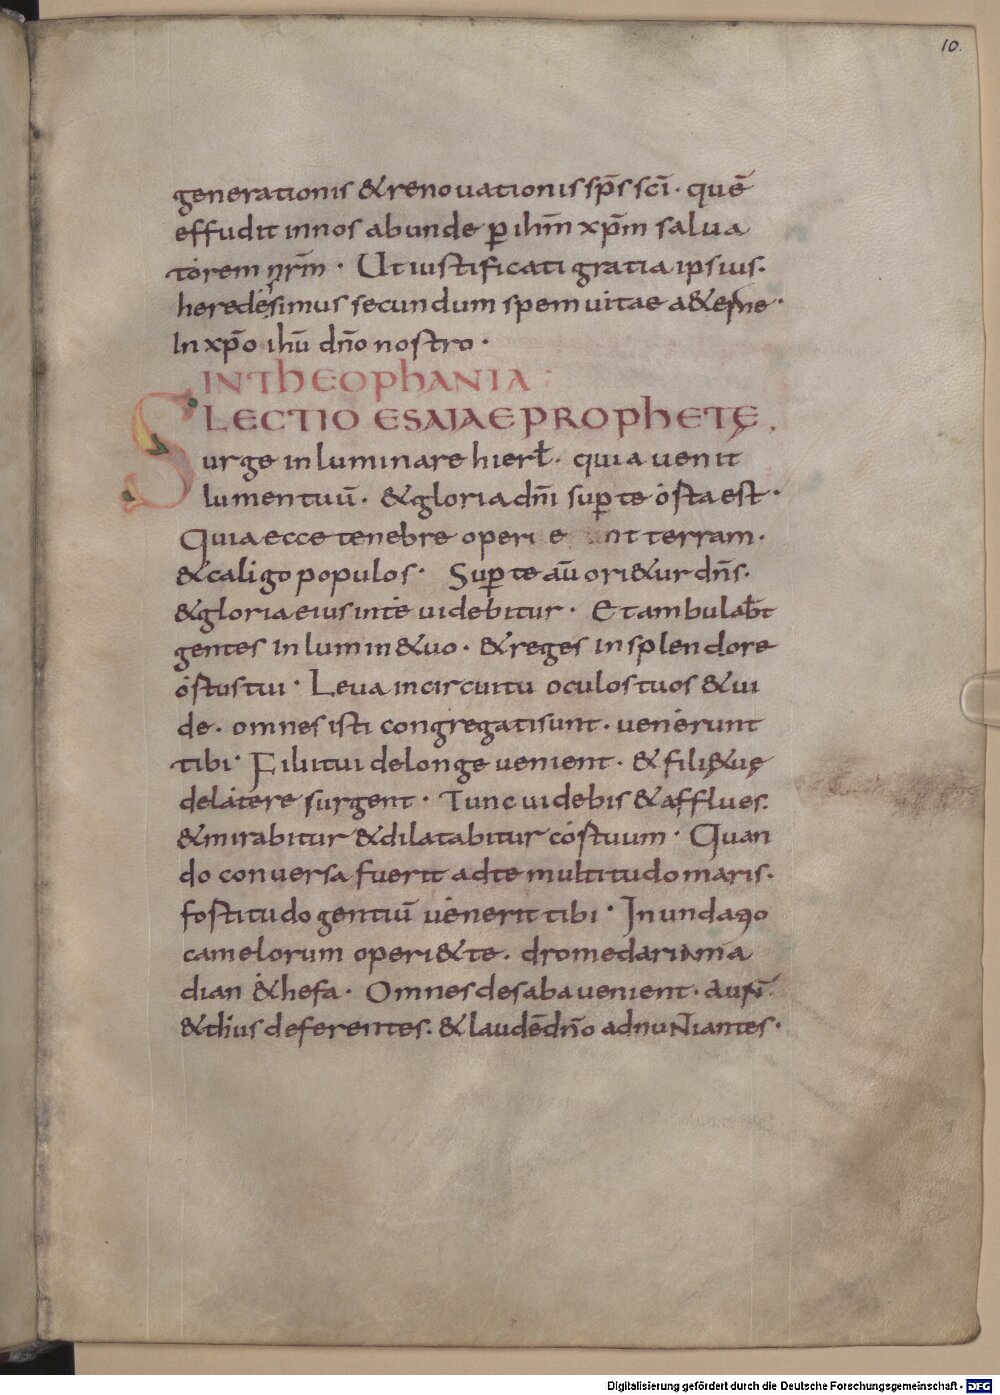 10.
generationis & renouationis sp̄s sc̄i · quē
effudit in nos abunde ꝑ ih̄m xp̄m salua
torem nr̄m · Ut iustificati gratia ipsius.
heredes simus secundum spem uitae a&erne ·
In xp̄o ihū dn̄o nostro ·
IN THEOPHANIA :
LECTIO ESAIAE PROPHETĘ.
Surge inluminare hierł. quia uenit
lumen tuū. & gloria dn̄i suꝑ te orta est ·
Quia ecce tenebre operi e nt terram.
& caligo populos · Suꝑ te aū ori&ur dn̄s.
& gloria eius in te uidebitur · Et ambulab̄t
gentes in lumin& uo. & reges in splendore
ortus tui · Leua in circuitu oculos tuos & ui
de. omnes isti congregati sunt. uenerunt
tibi · Filii tui de longe uenient. & filię &uę
de latere surgent · Tunc uidebis & afflues.
& mirabitur & dilatabitur cor tuum · Quan
do conuersa fuerit ad te multitudo maris.
fortitudo gentiū uenerit tibi · Inundatio
camelorum operi& te. dromedarii ma
dian & hefa · Omnes de saba uenient. aurū
& thus deferentes. & laudē dn̄o adnuntiantes ·
Digitalisierung gefördert durch die Deutsche Forschungsgemeinschaft - DFG